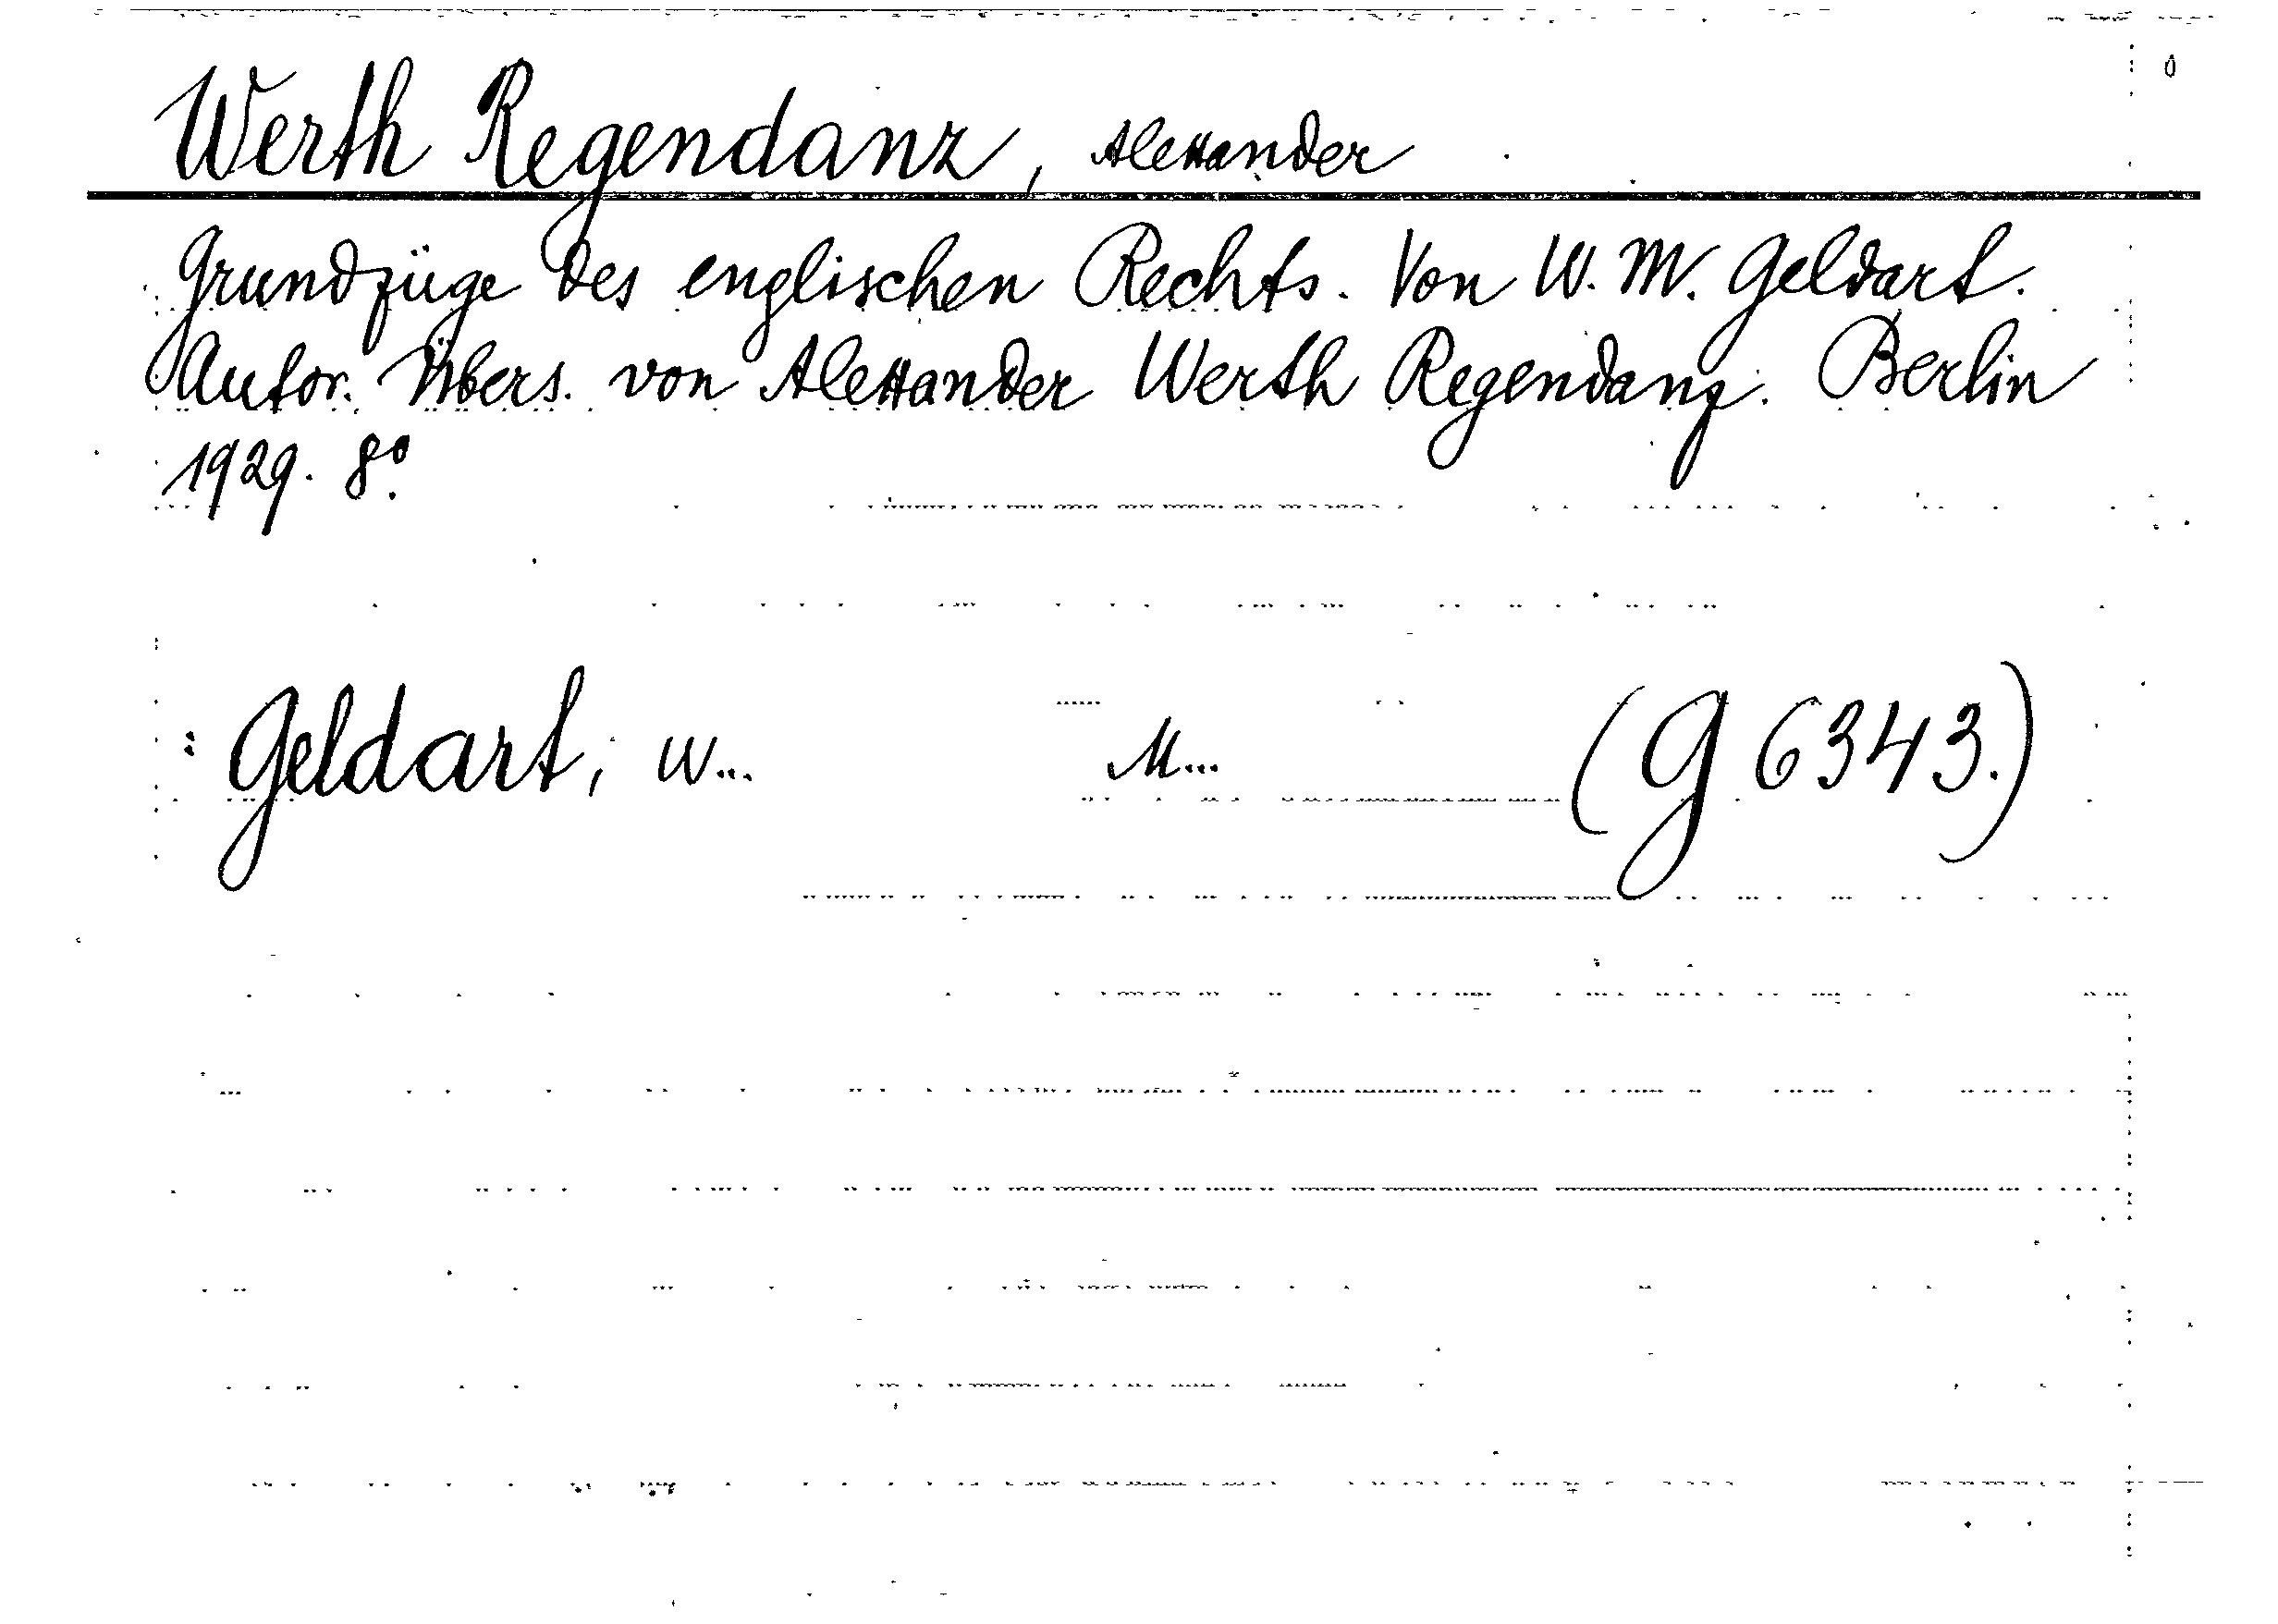 Werth Regendanz, Alexander
Grundzüge des englischen Rechts. Von W. M. Geldart.
Autor. Übers. von Alexander Werth Regendanz. Berlin
1929. 8°.
Geldart, W... M... (G 6343.)